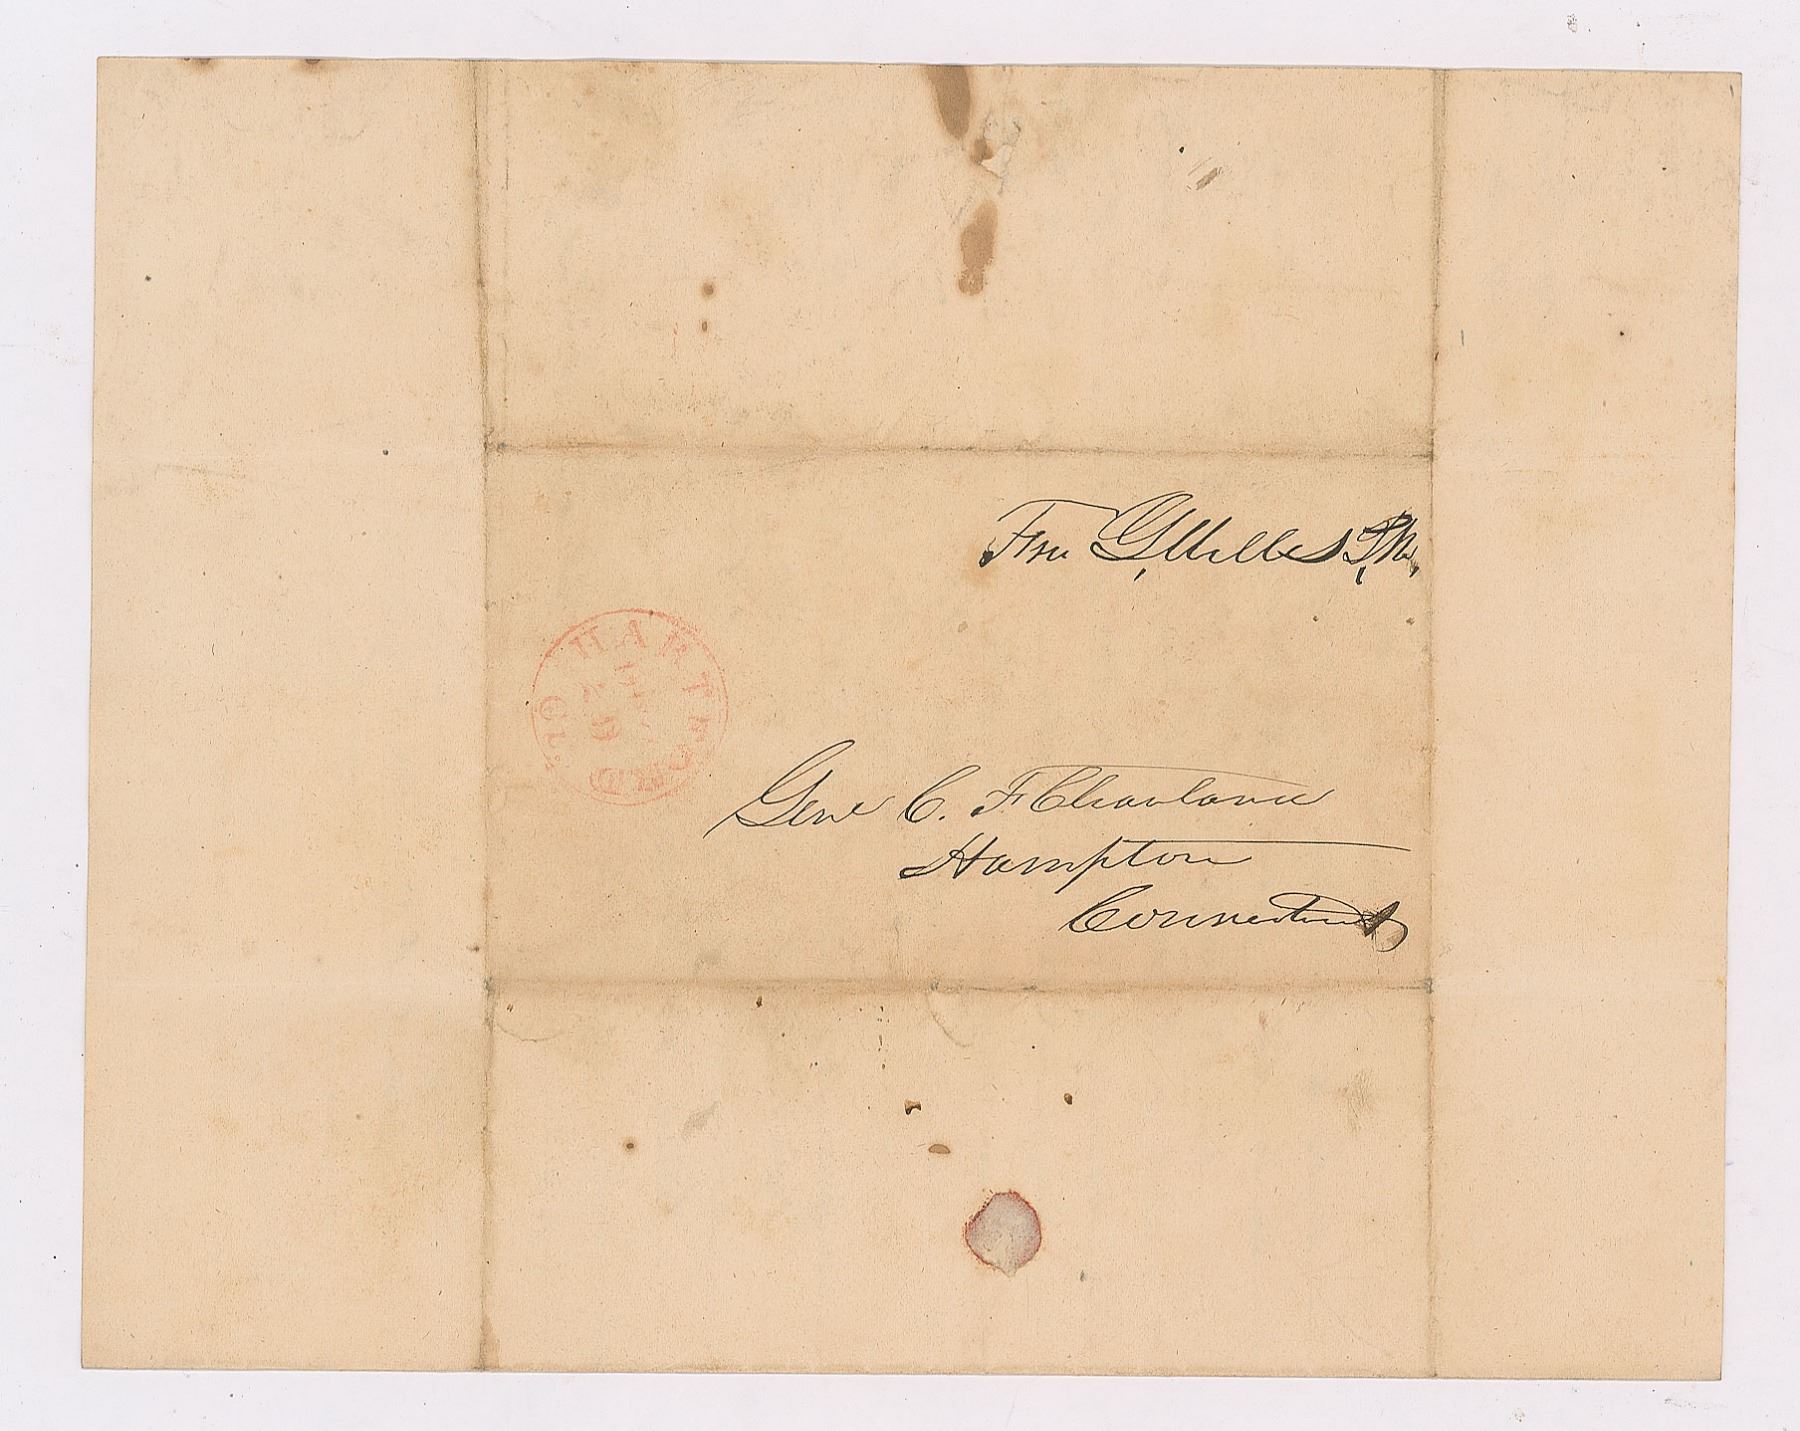 Free G, Welles P, M,
HARTFORD
CT.
Genl C. F Cleaveland
Hampton
Connecticut